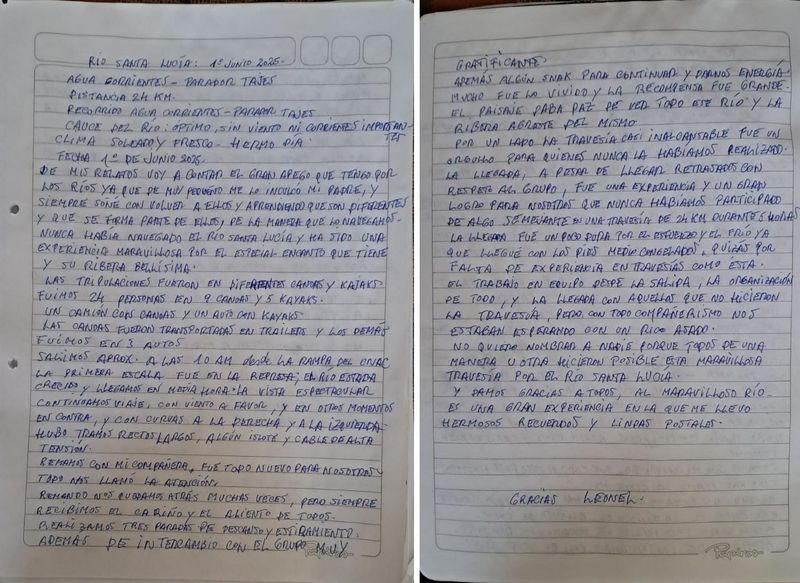 RÍO SANTA LUCÍA: 1º JUNIO 2025.
AGUA CORRIENTES - PARADOR TAJES
DISTANCIA 24 KM.
RECORRIDO AGUA CORRIENTES - PARADOR TAJES
CAUCE DEL RÍO: OPTIMO, SIN VIENTO NI CORRIENTES IMPORTANTES
CLIMA SOLEADO Y FRESCO - HERMO DIA
FECHA 1º DE JUNIO 2025.
DE MIS RELATOS VOY A CONTAR EL GRAN APEGO QUE TENGO POR
LOS RÍOS YA QUE DE MUY PEQUEÑO ME LO INCULCÓ MI PADRE, Y
SIEMPRE SOÑE CON VOLVER A ELLOS Y APRENDIENDO QUE SON DIFERENTES
Y QUE SE FORMA PARTE DE ELLOS, DE LA MANERA QUE LO NAVEGAMOS.
NUNCA HABÍA NAVEGADO EL RÍO SANTA LUCÍA Y HA SIDO UNA
EXPERIENCIA MARAVILLOSA POR EL ESPECIAL ENCANTO QUE TIENE
Y SU RIBERA BELLÍSIMA.
LAS TRIPULACIONES FUERON EN DIFERENTES CANOAS Y KAJAKS.
FUIMOS 24 PERSONAS EN 9 CANOAS Y 5 KAYAKS.
UN CAMIÓN CON CANOAS Y UN AUTO CON KAYAKS.
LAS CANOAS FUERON TRANSPORTADAS EN TRAILERS Y LOS DEMÁS
FUIMOS EN 3 AUTOS
SALIMOS APROX. A LAS 10 AM desde LA RAMPA DEL CNAC
LA PRIMERA ESCALA FUE EN LA REPRESA; EL RÍO ESTABA
CRECIDO Y LLEGAMOS EN MEDIA HORA. LA VISTA ESPECTACULAR
CONTINUAMOS VIAJE, CON VIENTO A FAVOR, Y EN OTROS MOMENTOS
EN CONTRA, Y CON CURVAS A LA DERECHA Y A LA IZQUIERDA
HUBO TRAMOS RECTOS LARGOS, ALGÚN ISLOTE Y CABLE DE ALTA
TENSIÓN.
REMAMOS CON MI COMPAÑERA, FUE TODO NUEVO PARA NOSOTROS
TODO NOS LLAMÓ LA ATENCIÓN.
REMANDO NOS QUEDAMOS ATRÁS MUCHAS VECES, PERO SIEMPRE
RECIBIMOS EL CARIÑO Y EL ALIENTO DE TODOS.
REALIZAMOS TRES PARADAS DE DESCANSO Y ESTIRAMIENTO.
ADEMÁS DE INTERCAMBIO CON EL GRUPO MUY
Papiros
GRATIFICANTE.
ADEMÁS ALGÚN SNAK PARA CONTINUAR Y DARNOS ENERGÍA.
MUCHO FUE LO VIVIDO Y LA RECOMPENSA FUE GRANDE.
EL PAISAJE DABA PAZ DE VER TODO ESE RÍO Y LA
RIBERA AGRESTE DEL MISMO.
POR UN LADO LA TRAVESÍA CASI INALCANSABLE FUE UN
ORGULLO PARA QUIENES NUNCA LA HABÍAMOS REALIZADO.
LA LLEGADA, A PESAR DE LLEGAR RETRASADOS CON
RESPETO AL GRUPO, FUE UNA EXPERIENCIA Y UN GRAN
LOGRO PARA NOSOTROS QUE NUNCA HABÍAMOS PARTICIPADO
DE ALGO SEMEJANTE EN UNA TRAVESÍA DE 24 KM DURANTE 5 HORAS
LA LLEGADA FUE UN POCO DURA POR EL ESFUERZO Y EL FRÍO YA
QUE LLEGUÉ CON LOS PIES MEDIO CONGELADOS, QUIZÁS POR
FALTA DE EXPERIENCIA EN TRAVESÍAS COMO ESTA.
EL TRABAJO EN EQUIPO DESDE LA SALIDA, LA ORGANIZACIÓN
DE TODO, Y LA LLEGADA CON AQUELLOS QUE NO HICIERON
LA TRAVESÍA, PERO CON TODO COMPAÑERISMO NOS
ESTABAN ESPERANDO CON UN RICO ASADO.
NO QUIERO NOMBRAR A NADIE PORQUE TODOS DE UNA
MANERA U OTRA HICIERON POSIBLE ESTA MARAVILLOSA
TRAVESÍA POR EL RÍO SANTA LUCÍA.
Y DAMOS GRACIAS A TODOS, AL MARAVILLOSO RÍO.
ES UNA GRAN EXPERIENCIA EN LA QUE ME LLEVO
HERMOSOS RECUERDOS Y LINDAS POSTALES.
GRACIAS LEONEL.
Papiros